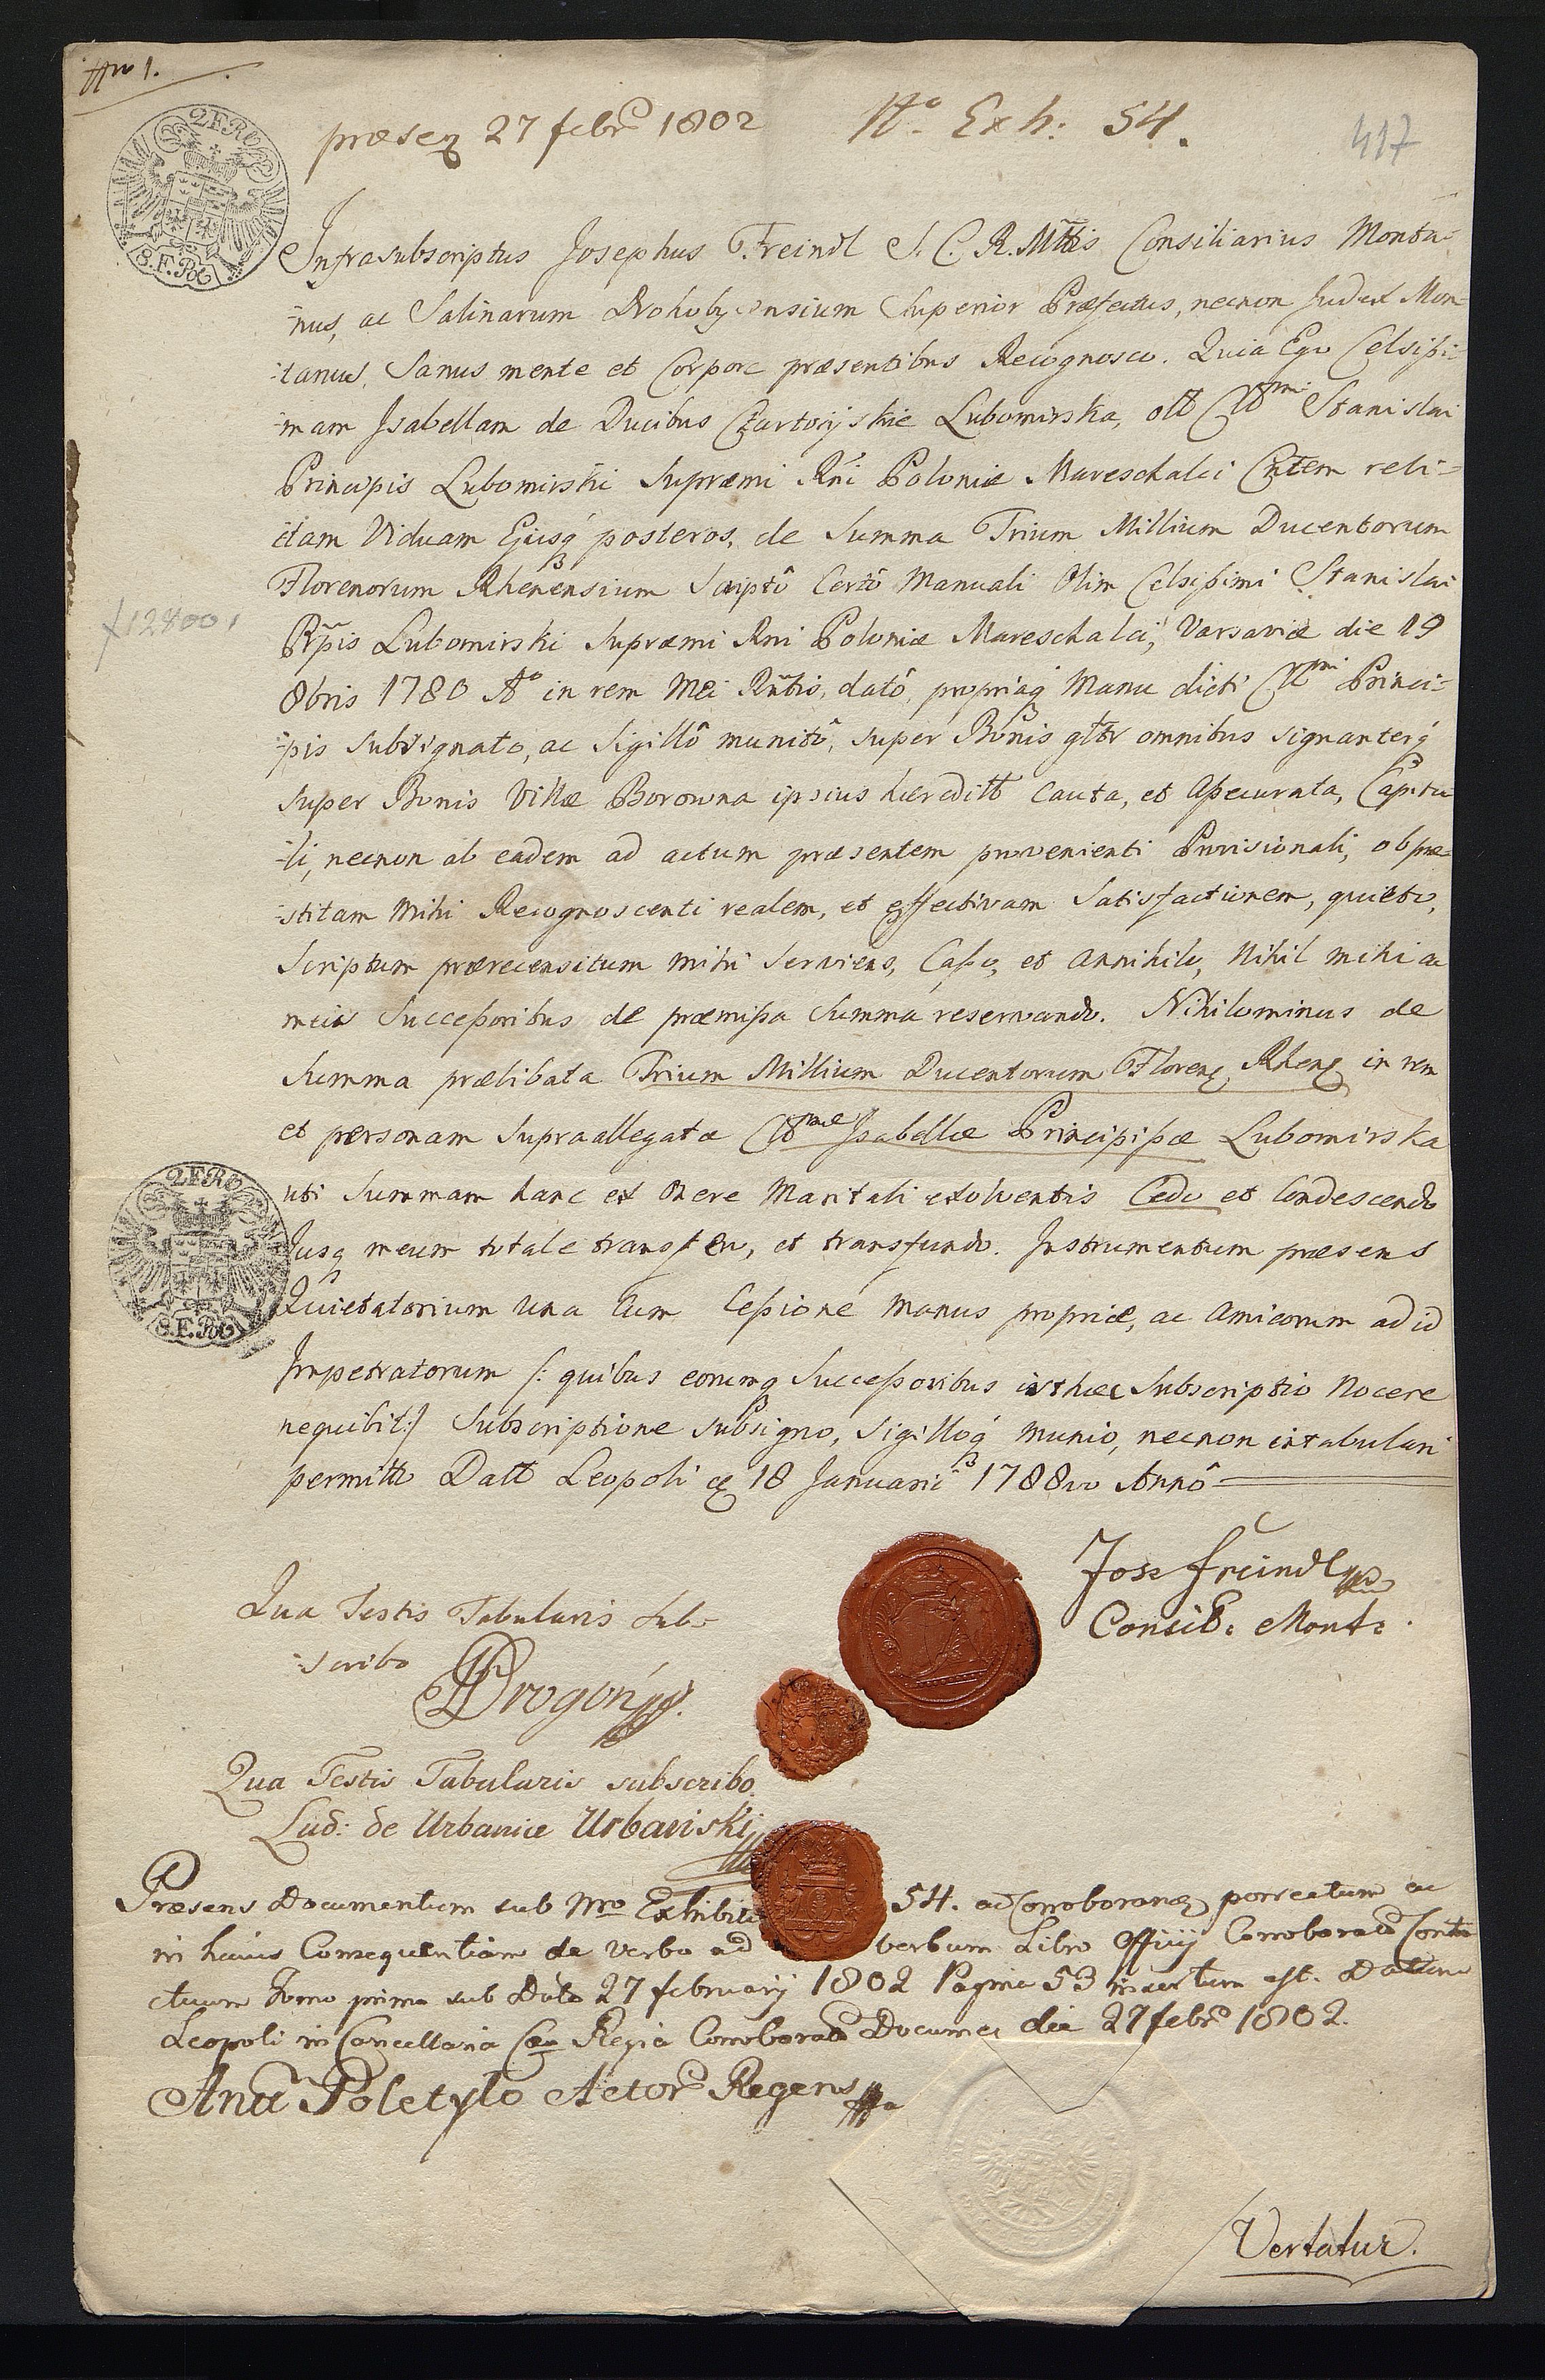 Nro 1.
præsen 27 febr 1802 No. Exh: 54.
417
2FR
8.F.Pol
Infrasubscriptus Josephus Freindl S. C. R. Mttis Consiliarius Monta-
nus, ac Salinarum Drohobycensium Superior Præfectus, necnon Judex Mon=
:tanus, Sanus mente et Corpore præsentibus Recognosco. Quia Ego Celsissi=
:mam Isabellam de Ducibus Czartoryskie Lubomirska, olt Clssmi Stanislai
Principis Lubomirski Supræmi Rni Poloniæ Mareschalci Cntem reli=
ctam Viduam Ejusq posteros, de Summa Trium Millium Ducentorum
Florenorum Rhenensium Scriptô Certô Manuali Olim Celsissimi Stanislai
f 12800
Rpis Lubomirski Supræmi Rni Poloniæ Mareschalci, Varsaviæ die 19
8bris 1780 Ao in rem Mei Rntis, datô, propriaq Manu dicti Clssmi Princi=
:pis subsignato, ac Sigillô munitô, super Bonis gltr omnibus signanterq
super Bonis Villæ Borowna ipsius hæreditt Cauta, et Assecurata, Capita
:li, necnon ab eadem ad actum præsentem provenienti Provisionali, ob præ=
:stitam Mihi Recognoscenti realem, et effectivam Satisfactionem, quieto,
Scriptum prærecensitum mihi Serviens, Casso, et Annihilo, Nihil mihi ac
meis Successoribus de præmissa Summa reservando. Nihilominus de
Summa prælibata Trium Millium Ducentorum Floren Rhen in rem
et personam Supraallegatæ Clssmæ Isabellæ Principissæ Lubomirska
uti Summam hanc ex Onere Maritali exolventis Cedo et Condescendo
Jusq meum totale transfero, et transfundo. Instrumentum præsens
2FR
8.F.Pol
Quietatorium Una Cum Cessione Manus propriæ, ac Amicorum ad id
Impetratorum /: quibus eorumq Successoribus isthæc Subscriptio Nocere
nequibit:/ Subscriptione subsigno, Sigilloq munio, necnon intabulari
permitto Datt Leopoli 18 Januarii 1788vo Annô
Jos Freindl
Consil: Mont:
Qua Testis Tabularis Sub=
:scribo
Drogon
Qua Testis Tabularis subscribo
Lud: de Urbanice Urbański
Præsens Documentum sub Nro Exhibiti 54. ad Corroboran porrectum ac
in huius Consequentiam de verbo ad verbum Libro Officij Corroborato Contra
ctuum Tomo primo sub Dato 27 february 1802 Pagina 53 insertum est. Datum
Leopoli in Cancellaria Cæs Regia Corroborat Documen die 27 febr 1802.
Ant Poletylo Actor Regens
Vertatur.